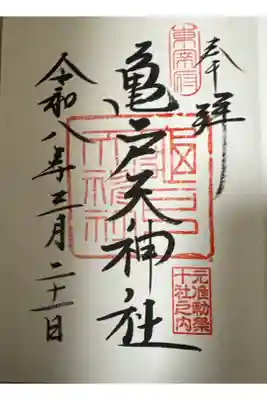 奉拝
東宰府
亀戸天神社
元准勅祭
十社之内
令和八年三月二十一日